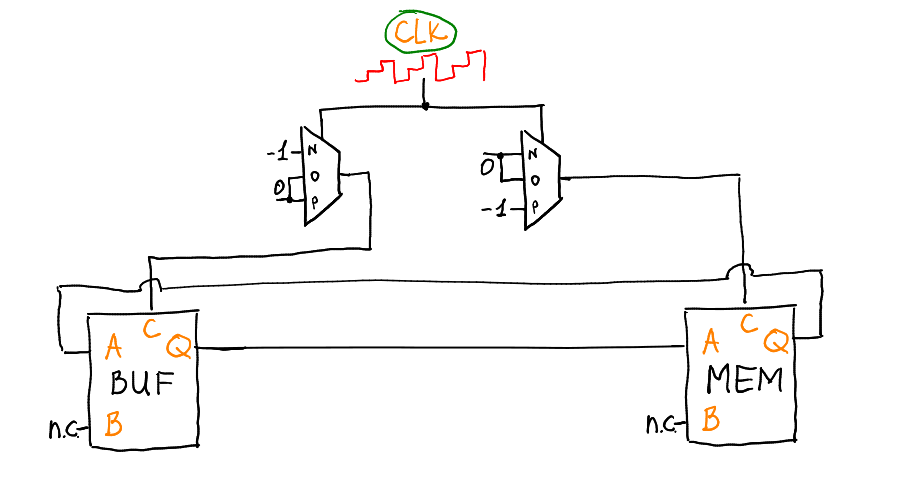 CLK
-1 N
0 O
P
0 N
O
-1 P
A C Q
BUF
n.c. B
A C Q
MEM
n.c. B